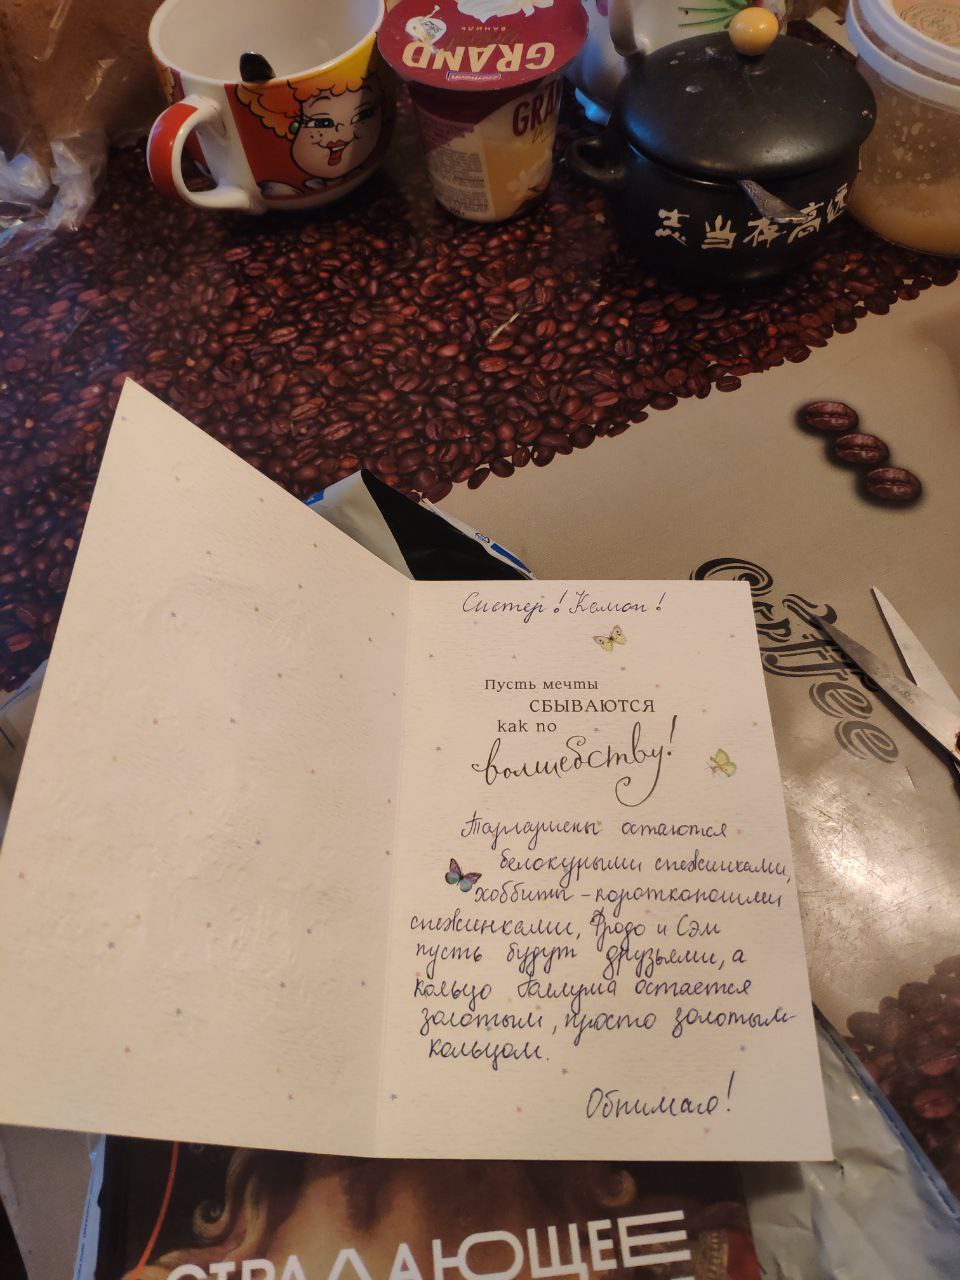 GRAND
ВАНИЛЬ
GRAN
当存高
Coffee
Систер! Камон!
Пусть мечты
СБЫВАЮТСЯ
как по
волшебству!
Таргариены остаются
белокурыми снежинками,
хоббиты - коротконогими
снежинками, Фродо и Сэм
пусть будут друзьями, а
кольцо Голлума остается
золотым, просто золотым
кольцом.
Обнимаю!
СТРАДАЮЩЕЕ